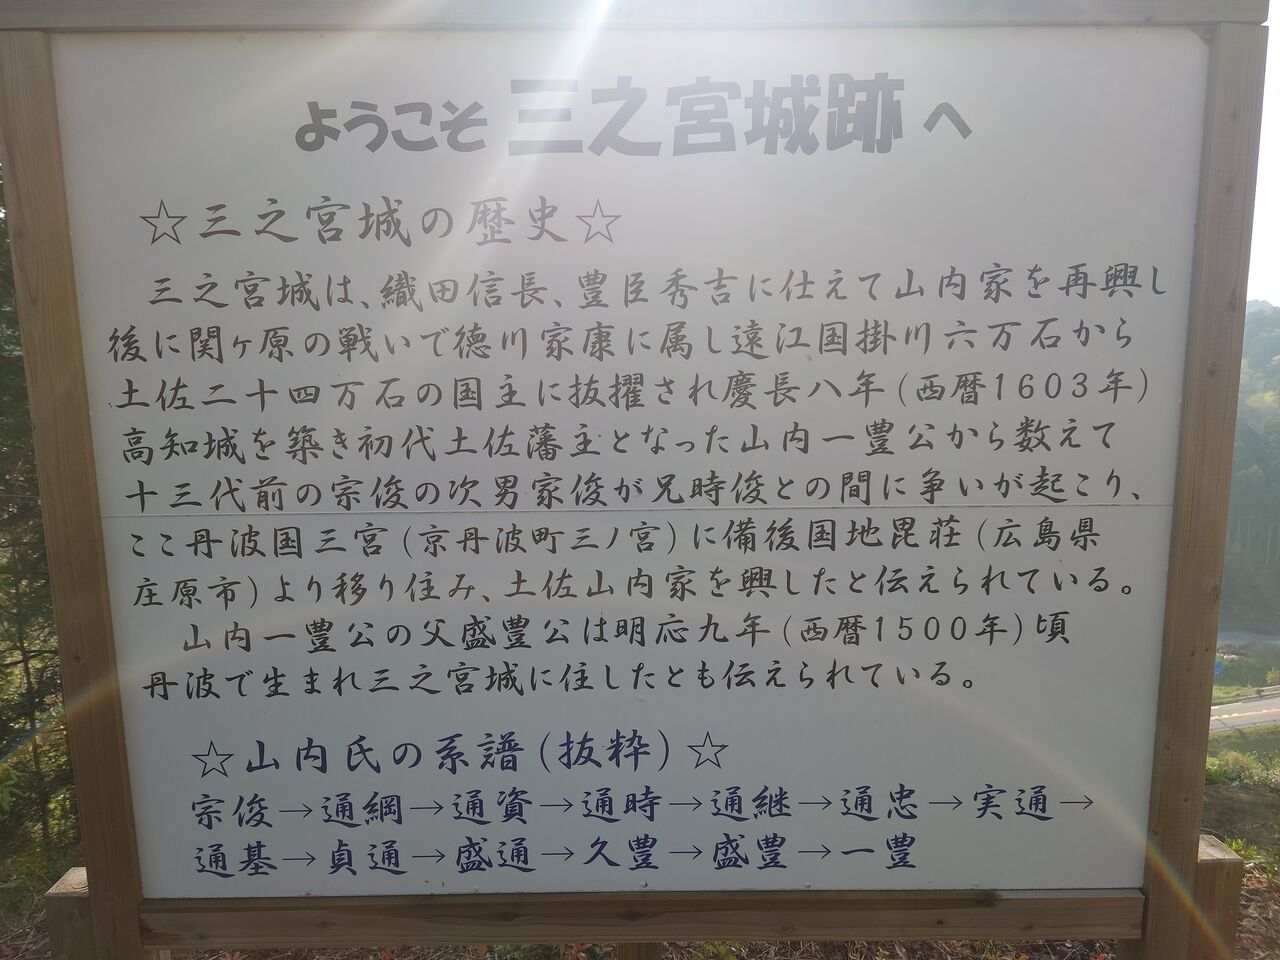 ようこそ三之宮城跡へ
☆三之宮城の歴史☆
三之宮城は、織田信長、豊臣秀吉に仕えて山内家を再興し
後に関ヶ原の戦いで徳川家康に属し遠江国掛川六万石から
土佐二十四万石の国主に抜擢され慶長八年(西暦1603年)
高知城を築き初代土佐藩主となった山内一豊公から数えて
十三代前の宗俊の次男家俊が兄時俊との間に争いが起こり、
ここ丹波国三宮(京丹波町三ノ宮)に備後国地毘荘(広島県
庄原市)より移り住み、土佐山内家を興したと伝えられている。
山内一豊公の父盛豊公は明応九年(西暦1500年)頃
丹波で生まれ三之宮城に住したとも伝えられている。
☆山内氏の系譜(抜粋)☆
宗俊→通綱→通資→通時→通継→通忠→実通→
通基→貞通→盛通→久豊→盛豊→一豊